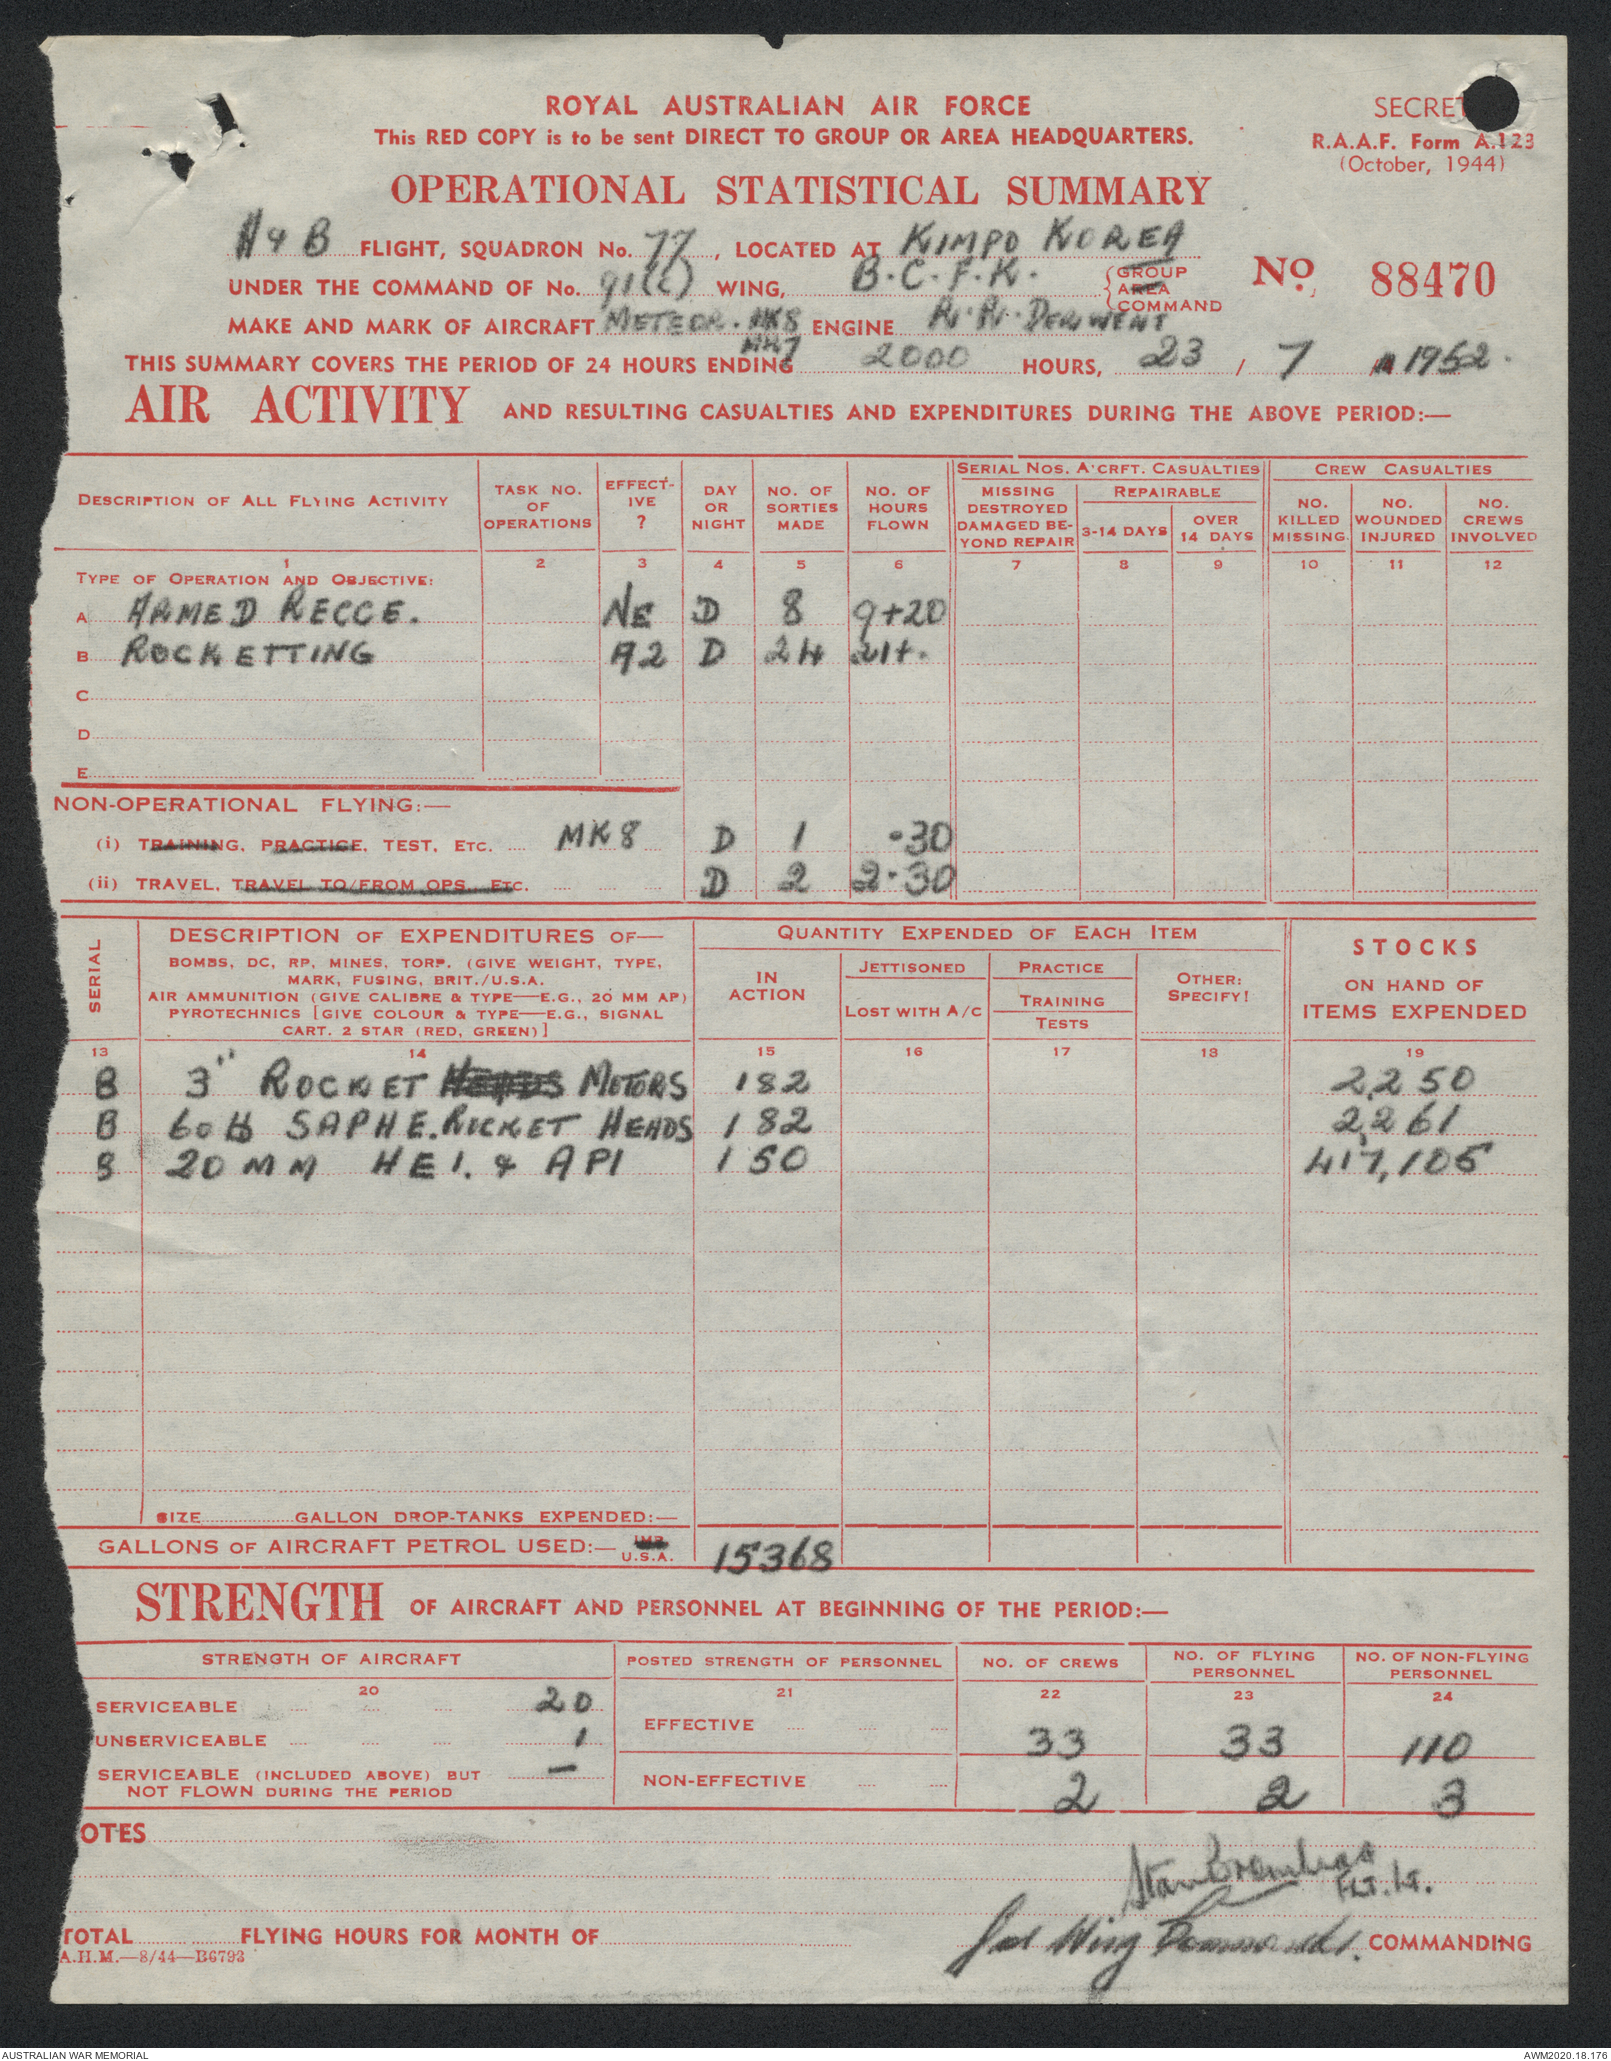 ROYAL AUSTRALIAN AIR FORCE
SECRET
This RED COPY is to be sent DIRECT TO GROUP OR AREA HEADQUARTERS.
R.A.A.F. Form A.123
(October, 1944)
OPERATIONAL STATISTICAL SUMMARY
A & B FLIGHT, SQUADRON No. 77, LOCATED AT KIMPO KOREA
UNDER THE COMMAND OF No. 91(C) WING, B.C.F.K. GROUP AREA COMMAND
No. 88470
MAKE AND MARK OF AIRCRAFT METEOR. MK8 MK7 ENGINE R.R. DERWENT
THIS SUMMARY COVERS THE PERIOD OF 24 HOURS ENDING 2000 HOURS, 23 / 7 / 1952.
AIR ACTIVITY AND RESULTING CASUALTIES AND EXPENDITURES DURING THE ABOVE PERIOD:—
DESCRIPTION OF ALL FLYING ACTIVITY
TASK NO. OF OPERATIONS
EFFECT-IVE ?
DAY OR NIGHT
NO. OF SORTIES MADE
NO. OF HOURS FLOWN
SERIAL NOS. A'CRFT. CASUALTIES
MISSING DESTROYED DAMAGED BE-YOND REPAIR
REPAIRABLE
3-14 DAYS
OVER 14 DAYS
CREW CASUALTIES
NO. KILLED MISSING
NO. WOUNDED INJURED
NO. CREWS INVOLVED
1 2 3 4 5 6 7 8 9 10 11 12
TYPE OF OPERATION AND OBJECTIVE:
A ARMED RECCE. NE D 8 9+20
B ROCKETTING A2 D 24 21+.
C
D
E
NON-OPERATIONAL FLYING:—
(i) TRAINING, PRACTICE, TEST, ETC. MK8 D 1 .30
(ii) TRAVEL, TRAVEL TO/FROM OPS. ETC. D 2 2.30
SERIAL
DESCRIPTION OF EXPENDITURES OF—
BOMBS, DC, RP, MINES, TORP. (GIVE WEIGHT, TYPE,
MARK, FUSING, BRIT./U.S.A.
AIR AMMUNITION (GIVE CALIBRE & TYPE—E.G., 20 MM AP)
PYROTECHNICS [GIVE COLOUR & TYPE—E.G., SIGNAL
CART. 2 STAR (RED, GREEN)]
QUANTITY EXPENDED OF EACH ITEM
IN ACTION
JETTISONED
LOST WITH A/C
PRACTICE
TRAINING
TESTS
OTHER: SPECIFY!
STOCKS
ON HAND OF
ITEMS EXPENDED
13 14 15 16 17 18 19
B 3" ROCKET HEADS MOTORS 182 2,250
B 60 lb SAPHE. ROCKET HEADS 182 2,261
B 20 MM HEI. & API 150 417,105
SIZE GALLON DROP-TANKS EXPENDED:—
GALLONS OF AIRCRAFT PETROL USED:— IMP. U.S.A. 15368
STRENGTH OF AIRCRAFT AND PERSONNEL AT BEGINNING OF THE PERIOD:—
STRENGTH OF AIRCRAFT
POSTED STRENGTH OF PERSONNEL
NO. OF CREWS
NO. OF FLYING PERSONNEL
NO. OF NON-FLYING PERSONNEL
20 21 22 23 24
SERVICEABLE 20
UNSERVICEABLE 1
SERVICEABLE (INCLUDED ABOVE) BUT
NOT FLOWN DURING THE PERIOD —
EFFECTIVE 33 33 110
NON-EFFECTIVE 2 2 3
OTES
Flt. Lt.
TOTAL FLYING HOURS FOR MONTH OF
for Wing Commander. COMMANDING
A.H.M.—8/44—B6793
AUSTRALIAN WAR MEMORIAL
AWM2020.18.176